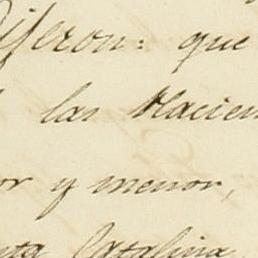 dijeron: que
las Hacien
or y menor,
nta Catalina